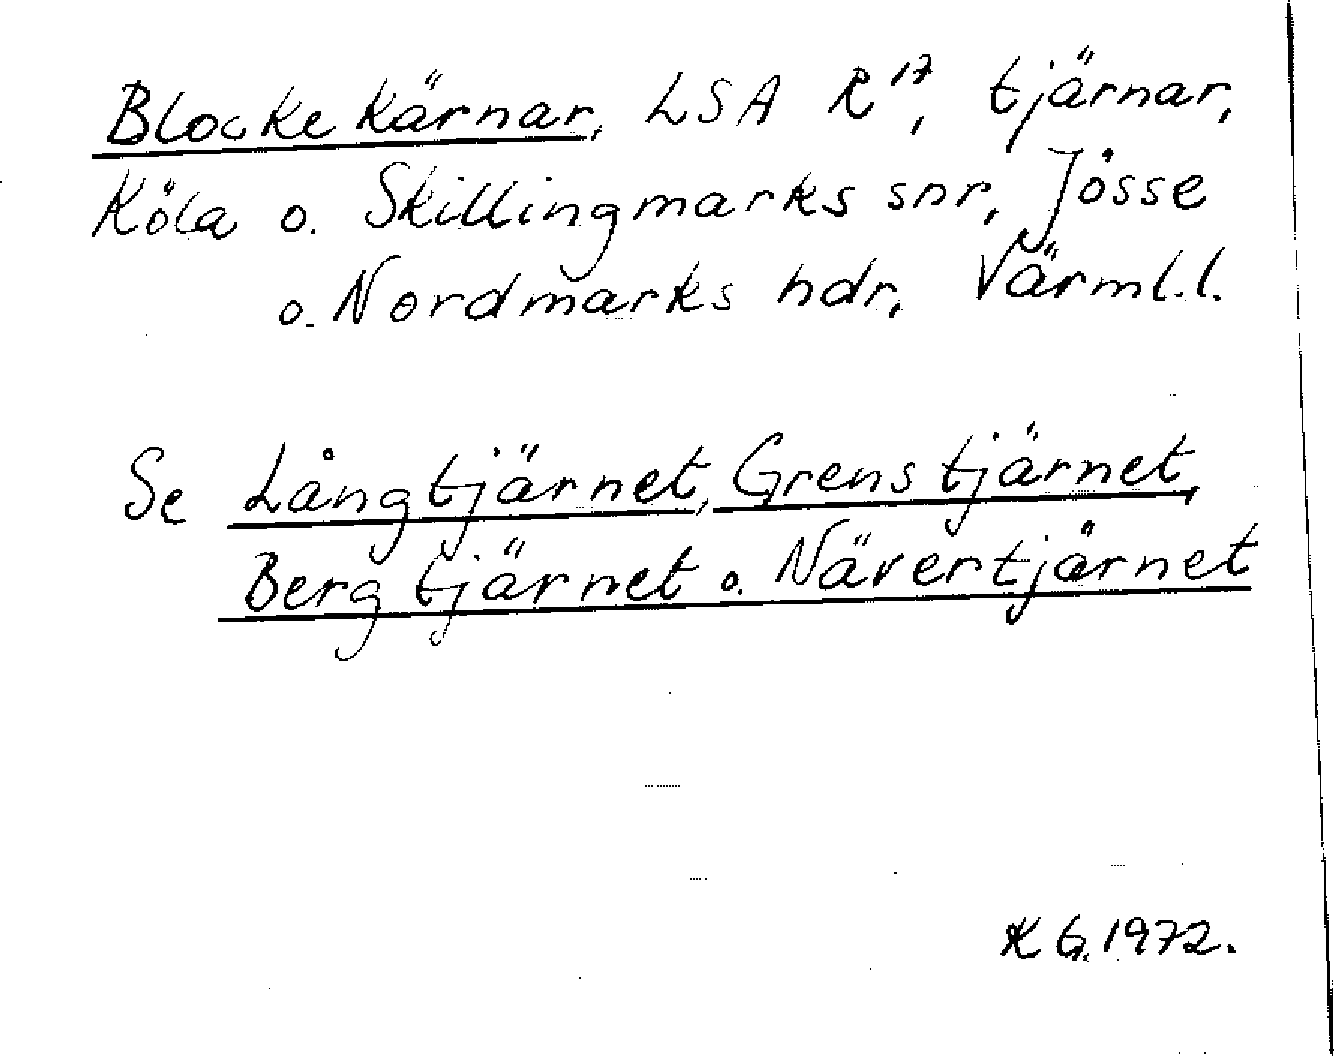 Blocke kärnar, LSA R¹⁷, tjärnar,
Köla o. Skillingmarks snr, Jösse
o. Nordmarks hdr, Värml.l.
Se Långtjärnet, Grenstjärnet,
Bergtjärnet o. Nävertjärnet
KG.1972.